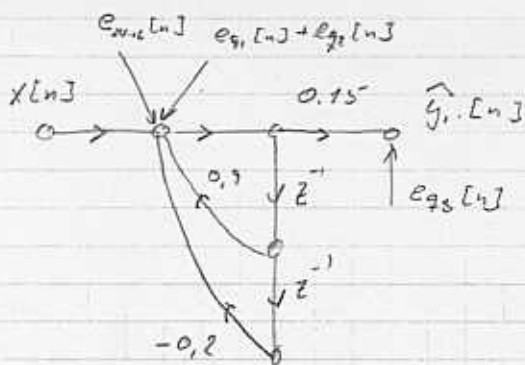 e_{q1}[n] + e_{q2}[n]
x[n]
0.15
ŷ₁[n]
0,9
z⁻¹
e_{q3}[n]
z⁻¹
-0,2